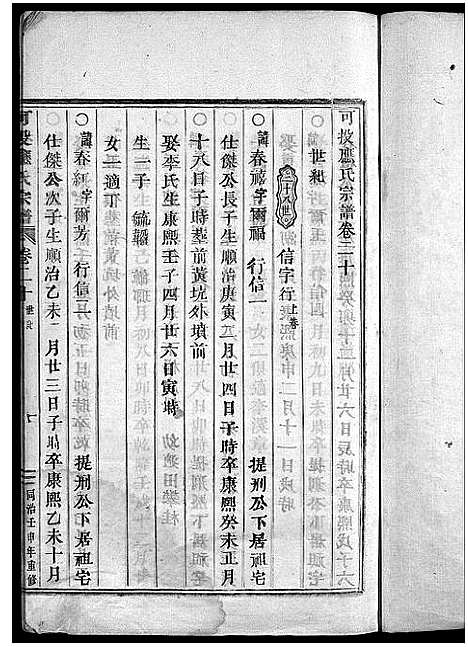 可投應氏宗譜卷二十
世紀
二十八世 信字行 上卷
○諱春禧字爾福 行信一 提刑公下居祖宅
仕傑公長子生順治庚寅二月廿四日子時卒康熙癸未正月
十八日子時塟前黃坑外墳前
娶李氏生康熙壬子四月廿六日寅時
生一子 毓
女二適
○諱春 字爾芳 行信二 提刑公下居祖宅
仕傑公次子生順治乙未 月廿三日子時卒康熙乙未十月
可投應氏宗譜 卷二十 世次 一 同治壬申年重修